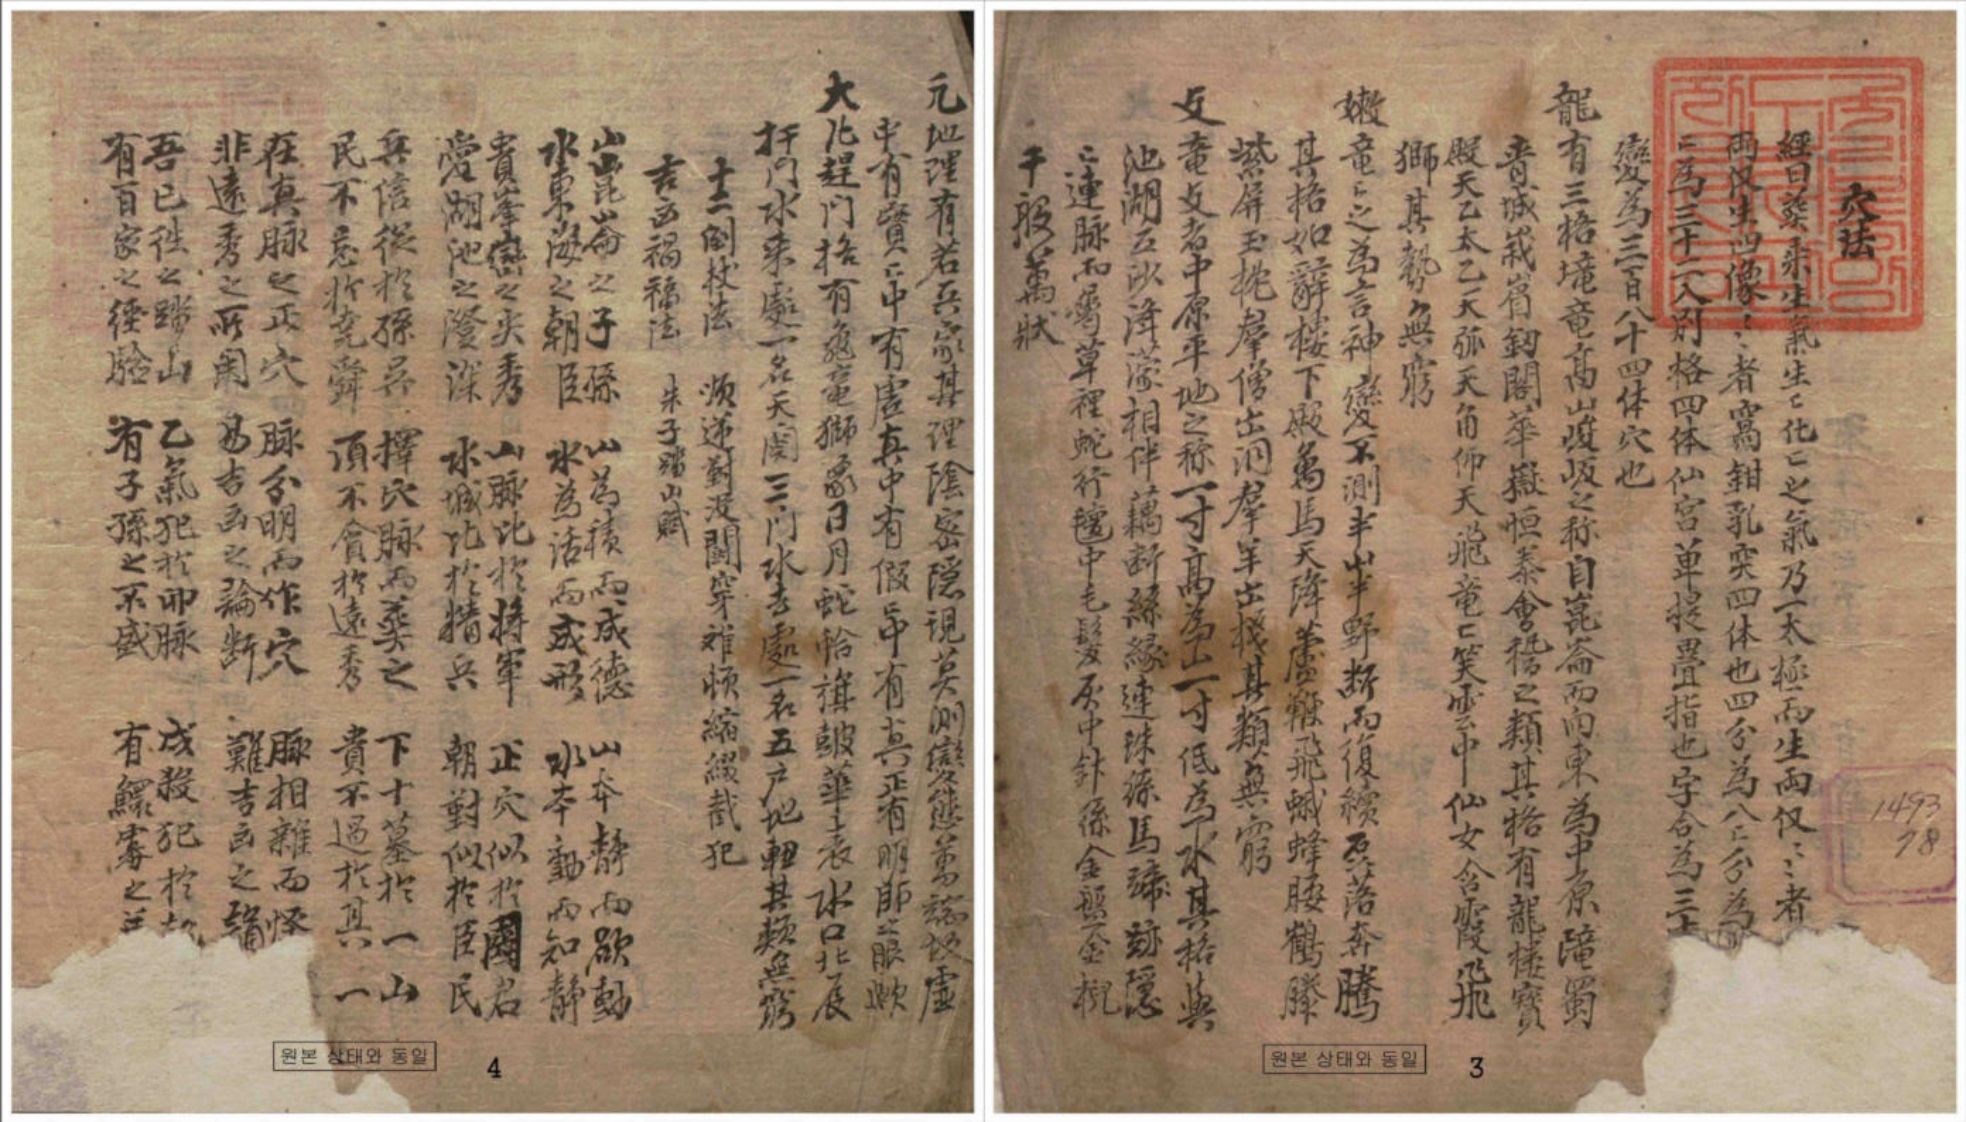 穴法
經曰葬乘生氣生〻化〻之氣乃一太極而生兩仪〻〻者
兩仪生四像〻〻者窩鉗乳突四体也四分為八〻分為
〻為三十二八別格四体仙宮单提疊指也字合為三
變爲三百八十四体穴也
龍有三格壠竜高山峻岋之称自崑崙而向東為中原隴蜀
青城峩嵋釰閣華嶽恒泰會稽之類其格有龍樓寶
殿天乙太乙天弧天角仰天飛竜〻笑雲中仙女含霞飛飛
獅其勢無窮
嫩竜〻之為言神變不測半山半野断而復續磊落奔騰
其格如辭樓下殿萬馬天降蘆鞭飛蛾蜂腰鶴膝
紫屏玉枕羣僧出洞羣羊出棧其類無窮
支竜支者中原平地之称一寸高為山一寸低為水其格與
池湖互沙濛相伴藕断絲緣連珠絲馬蹄跡隱
〻連脉而藏草裡蛇行氊中毛髮灰中針係金盤金槻
千般萬狀
1493
78
원본 상태와 동일
3
元地理有若兵家其理陰密隱現莫測變態萬端故虛
中有實〻中有虛真中有假〻中有真正有明師之眼歟
大凡趕門格有龜竜獅象日月蛇恰旗皷華表水口北辰
扞門水来處一名天関三門水去處一名五户地軸其類無窮
十二倒杖法 順逆對没開穿離頓縮綴截犯
吉凶禍福法 朱子踏山賦
山崑崙之子孫 山為積而成德 山夲靜而欲動
水東海之朝臣 水為活而成形 水夲動而知靜
貴峯巒之尖秀 山脉比於将軍 正穴似於國君
愛湖池之澄深 水城比於精兵 朝對似於臣民
兵信從於孫吳 擇穴脉而葬之 下十墓於一山
民不忘於堯舜 頂不貪於遠秀 貴不過於其一
在真脉之正穴 脉分明而作穴 脉相雜而怪
非遠秀之所関 易吉凶之論断 難吉凶之
吾已徃之踏山 乙氣犯於卯脉 戌殺犯於
有百家之經驗 有子孫之不盛 有鰥寡之
원본 상태와 동일
4